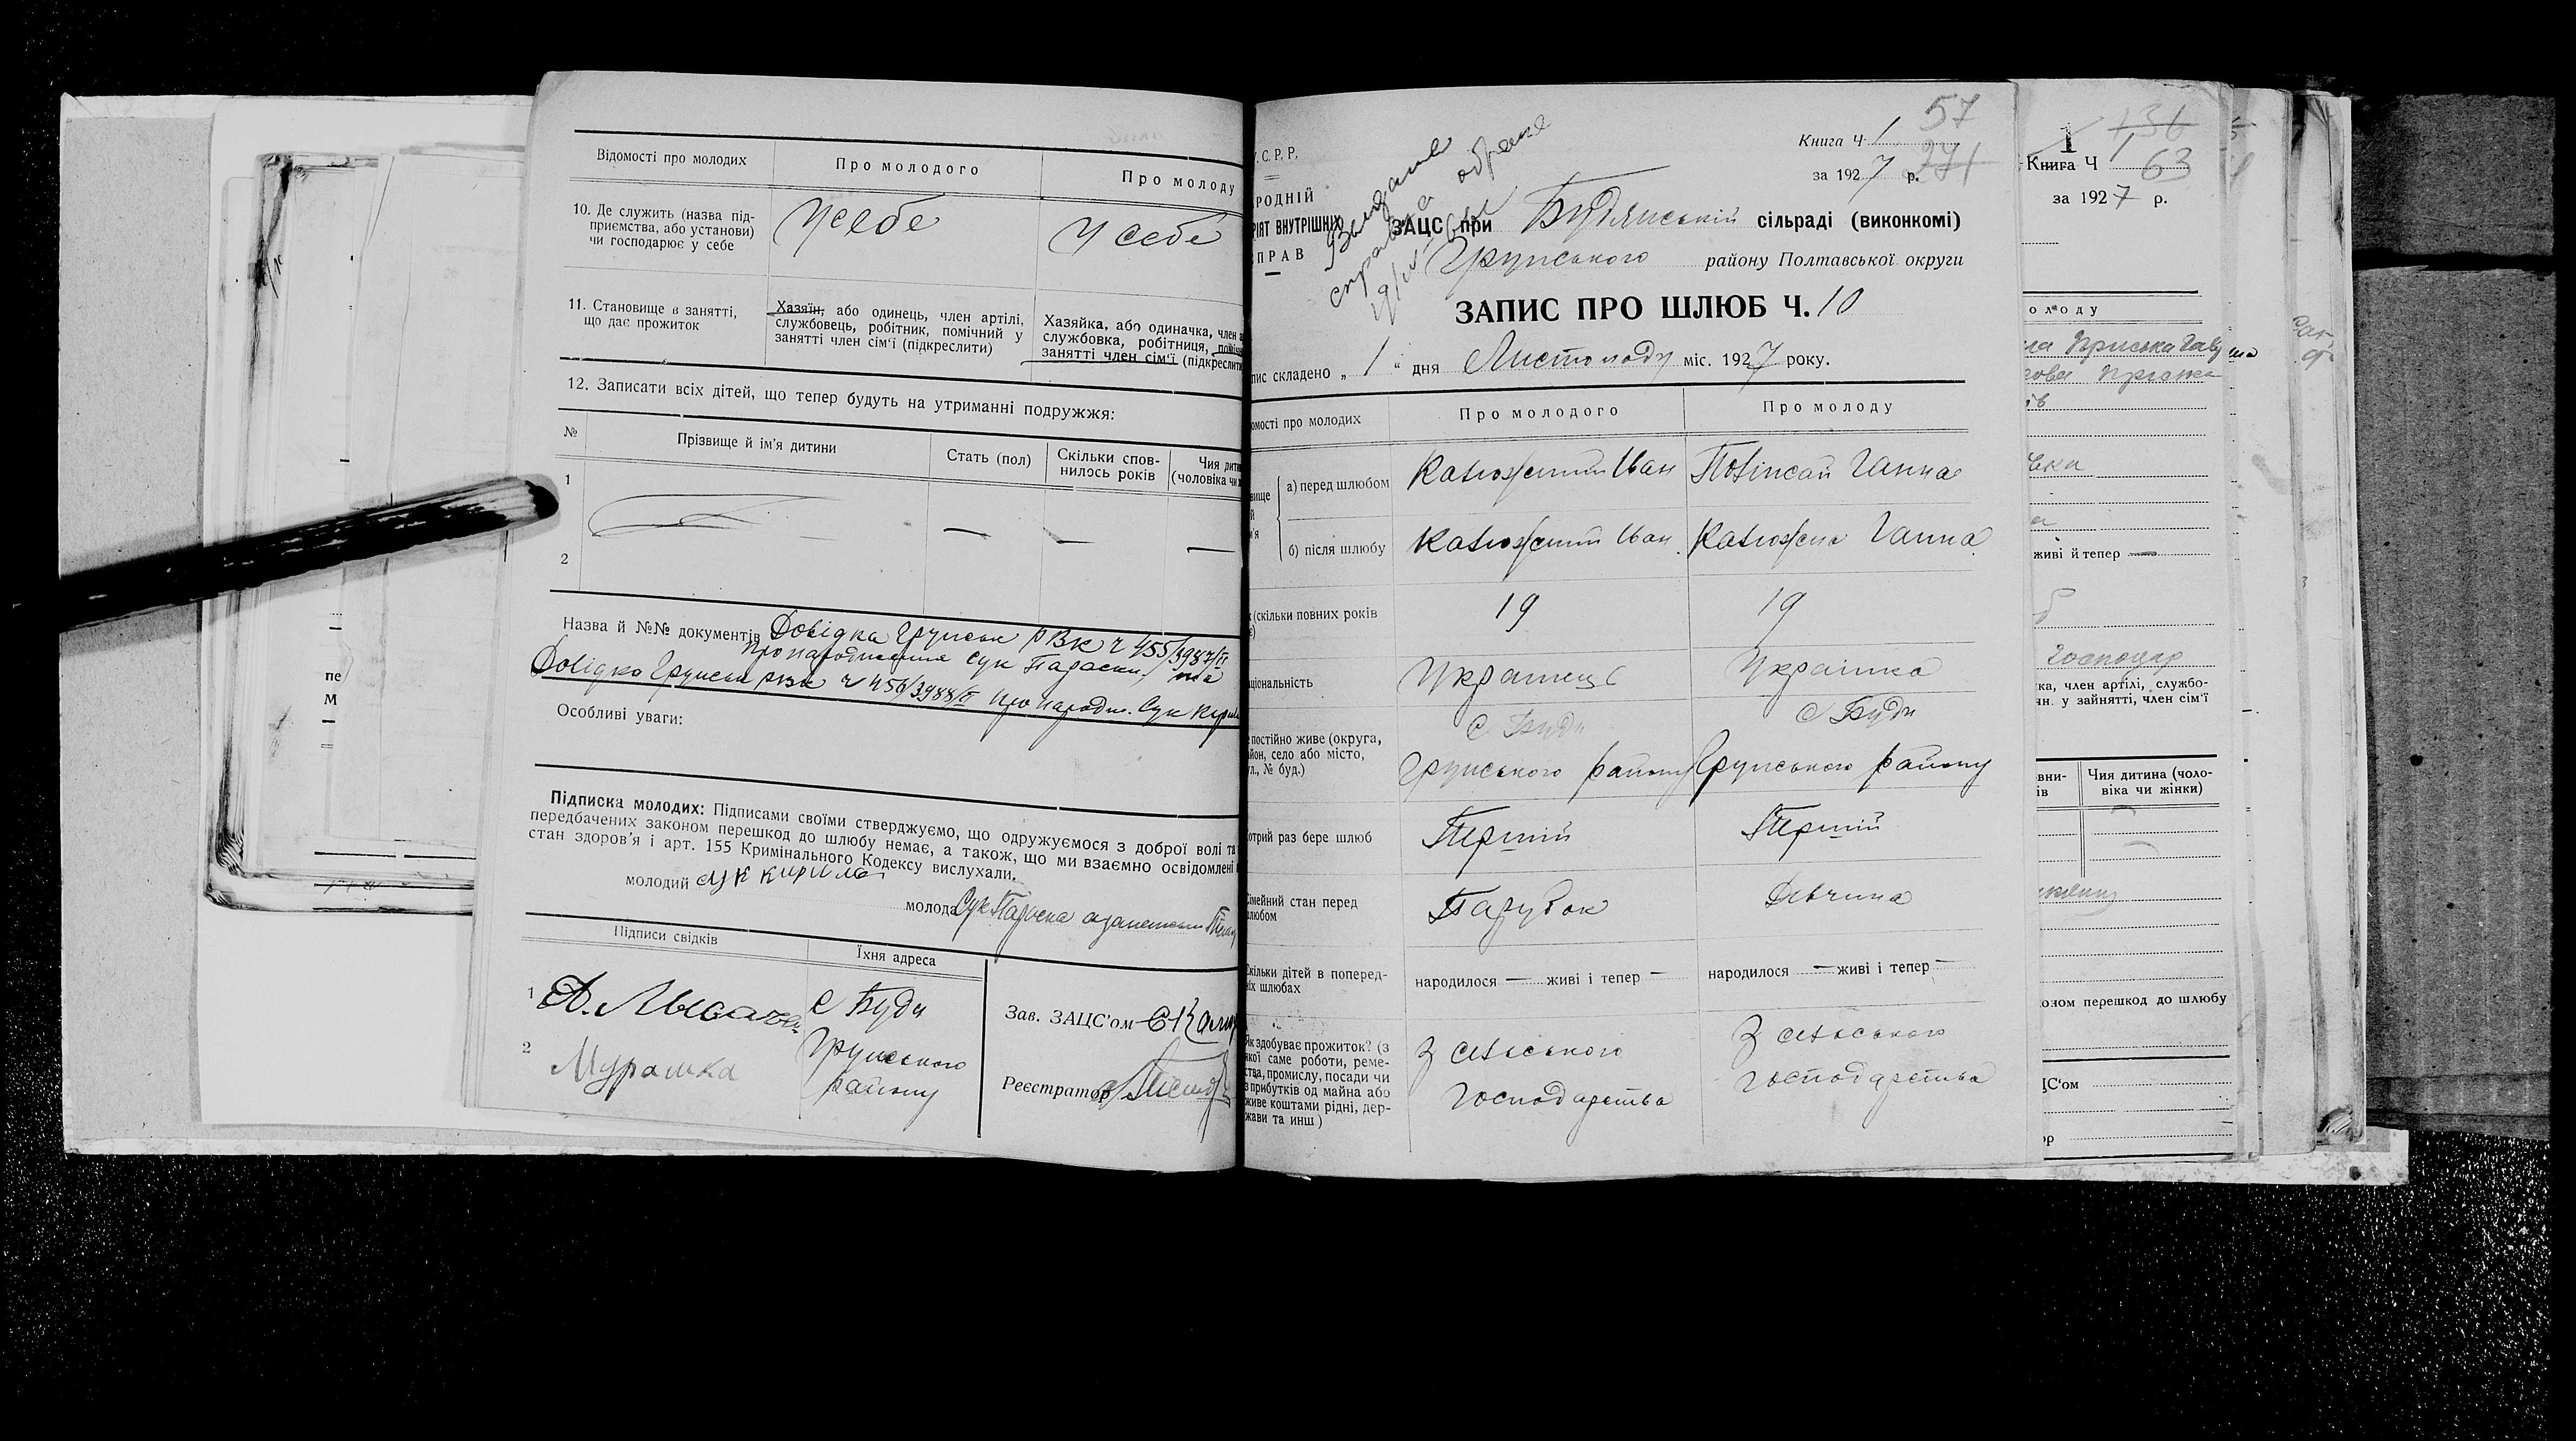 Відомості про молодих
Про молодого
Про молоду
10. Де служить (назва під-
приємства, або установи)
чи господарює у себе
У себе
У себе
11. Становище в занятті,
що дає прожиток
Хазяїн, або одинець, член артілі,
службовець, робітник, помічний у
занятті член сім'ї (підкреслити)
Хазяйка, або одиначка, член
службовка, робітниця,
занятті член сім'ї (підкреслити
12. Записати всіх дітей, що тепер будуть на утриманні подружжя:
№
Прізвище й ім'я дитини
Стать (пол)
Скільки спов-
нилось років
Чия дити
(чоловіка чи
1
2
Назва й №№ документів Довідка Грунськ РВК ч 455/3987/ІІ
про народження Сук Параски, та
Довідка Грунськ РВК ч 456/3988/ІІ про народж. Сук
Особливі уваги:
Підписка молодих: Підписами своїми стверджуємо, що одружуємося з доброї волі та
передбачених законом перешкод до шлюбу немає, а також, що ми взаємно освідомлені
стан здоров'я і арт. 155 Кримінального Кодексу вислухали.
молодий Сук Кирило
молода Сук Параска
Підписи свідків
Їхня адреса
1
с Буди
2 Мурашка
Грунського
району
Зав. ЗАЦС'ом
Реєстратор
С. Р. Р.
РОДНІЙ
РІЯТ ВНУТРІШНІХ
ПРАВ
Книга Ч. 1
57
за 1927 р.
271
ЗАЦС при Будянській сільраді (виконкомі)
Грунського району Полтавської округи
ЗАПИС ПРО ШЛЮБ Ч. 10
пис складено „ 1 “ дня Листопаду міс. 1927 року.
омості про молодих
Про молодого
Про молоду
вище
й
м'я
а) перед шлюбом
Калюжний Іван
Ганна
б) після шлюбу
Калюжний Іван
Калюжна Ганна
(скільки повних років
19
19
ціональність
Українець
Українка
постійно живе (округа,
йон, село або місто,
ул., № буд.)
с Буди
Грунського району
с Буди
Грунського району
отрий раз бере шлюб
Перший
Перший
імейний стан перед
шлюбом
Парубок
Дівчина
кільки дітей в поперед-
ніх шлюбах
народилося — живі і тепер —
народилося — живі і тепер —
Як здобуває прожиток? (з
якої саме роботи, реме-
ства, промислу, посади чи
з прибутків од майна або
живе коштами рідні, дер-
жави та инш)
З сільського
господарства
З сільського
господарства
1
136
Книга Ч 1
63
за 1927 р.
олоду
живі й тепер —
Господар
ка, член артілі, службо-
чн. у зайнятті, член сім'ї
вни-
ів
Чия дитина (чоло-
віка чи жінки)
оном перешкод до шлюбу
ЦС'ом
ор